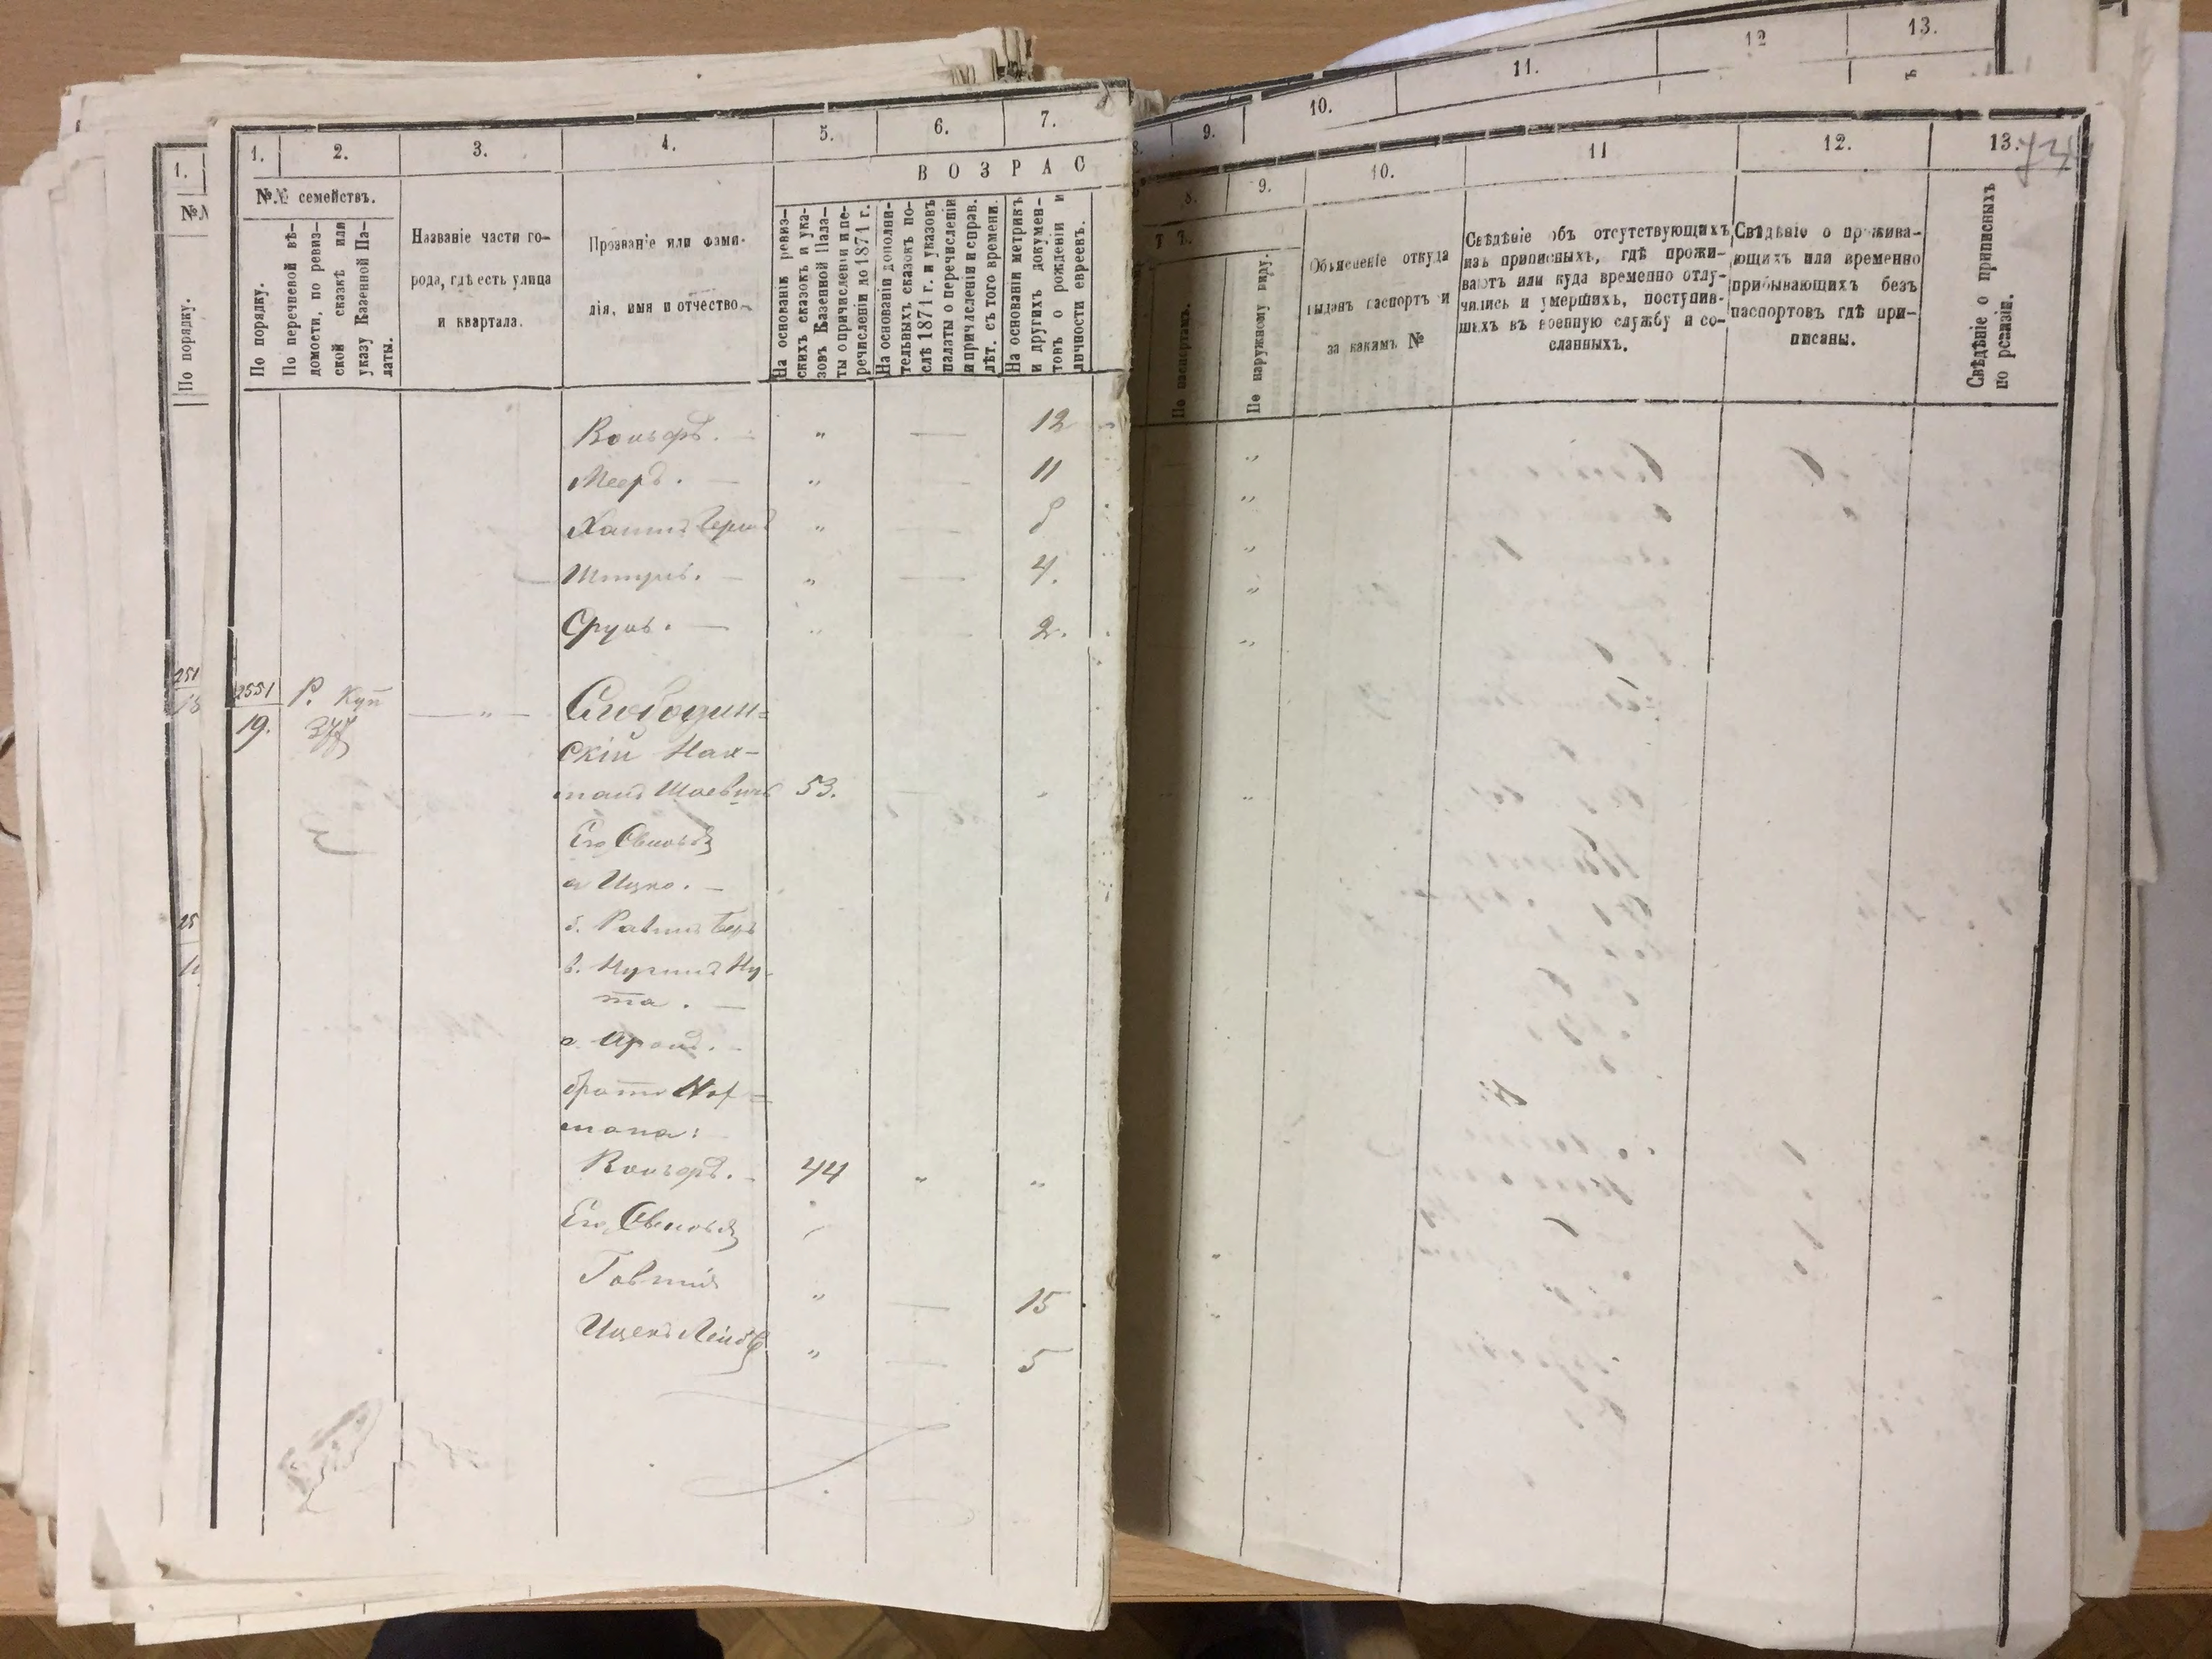 1.
№№
По порядку.
1.
2.
3.
4.
5.
6.
7.
В О З Р А С
№№ семействъ.
По порядку.
По перечневой вѣ-
домости, по ревиз-
ской сказкѣ или
указу Казенной Па-
латы.
Названіе части го-
рода, гдѣ есть улица
и квартала.
Прозваніе или фами-
лія, имя и отчество.
На основаніи ревиз-
скихъ сказокъ и ука-
зовъ Казенной Пала-
ты о причисленіи и пе-
речисленіи до 1871 г.
На основаніи дополни-
тельныхъ сказокъ по-
слѣ 1871 г. и указовъ
палаты о перечисленіи
и причисленіи и справ.
лѣт. съ того времени.
На основаніи метрикъ
и другихъ докумен-
товъ о рожденіи и
личности евреевъ.
Вольфъ. — „ — 12
Мееръ. — „ — 11
Хаимъ Герш „ —
„ — 4.
Сруль. — „ 2.
2551 Р. Куп — „ — Слободин=
19. 377 скій Нах-
манъ Шаевичъ 53.
Его Сыновья
а Ицко. —
б. Рав Беръ
в.
та. —
Аронъ.
братъ Нах=
мана:
Вольфъ. 44 „ „
Его Сыновья
„ — 15
Ицекъ Лейбъ „ — 5
9.
10.
11.
12
13.
8.
9.
10.
11
12.
13.
Т Ъ.
По паспортамъ.
По наружному виду.
Объясненіе откуда
выданъ паспортъ и
за какимъ №
Свѣдѣніе объ отсутствующихъ
изъ приписныхъ, гдѣ прожи-
ваютъ или куда временно отлу-
чились и умершихъ, поступив-
шихъ въ военную службу и со-
сланныхъ.
Свѣдѣніе о прожива-
ющихъ или временно
прибывающихъ безъ
паспортовъ гдѣ при-
писаны.
Свѣдѣніе о приписныхъ
по ревизіи.